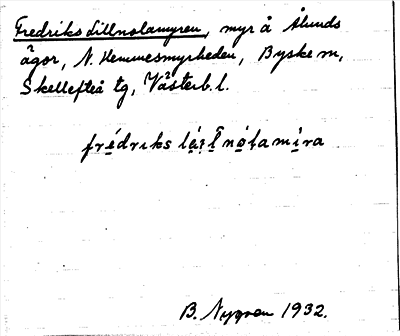 Fredriks Lillnolamyren, myr å Ålunds
ägor, N. Hemmesmyrheden, Byske sn,
Skellefteå tg, Västerb. l.
frédriks
B. Nygren 1932.